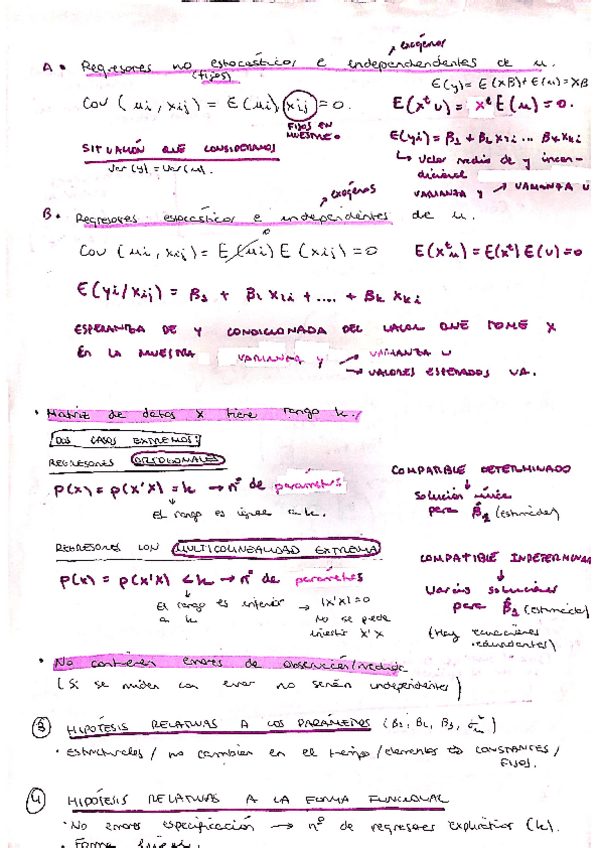 exógenos
A • Regresores no estocásticos e independientes de u.
(fijos)
E(y) = E(XB) + E(u) = XB
Cov (ui, xij) = E(ui) xij = 0.
E(x'u) = x' E(u) = 0.
FIJOS EN MUESTREO
SITUACIÓN QUE CONSIDERAMOS
Var(y) = Var(u).
E(yi) = β1 + β2 x2i ... βk xki
↳ Valor medio de y incondicional
VARIANZA y → VARIANZA U
exógenos
B. Regresores estocásticos e independientes de u.
Cov (ui, xij) = E(ui) E(xij) = 0
E(x'u) = E(x') E(u) = 0
E(yi/xij) = β1 + β2 x2i + .... + βk xki
ESPERANZA DE Y CONDICIONADA DEL VALOR QUE TOME X
EN LA MUESTRA
VARIANZA y → VARIANZA U
→ VALORES ESPERADOS VA.
• Matriz de datos X tiene rango k.
DOS CASOS EXTREMOS:
REGRESORES ORTOGONALES
p(x) = p(x'x) = k → nº de parámetros
El rango es igual a k.
COMPATIBLE DETERMINADO
Solución única
para β̂ (estimador)
REGRESORES CON MULTICOLINEALIDAD EXTREMA
p(x) = p(x'x) < k → nº de parámetros
El rango es inferior a k
→ |x'x| = 0
No se puede
invertir x'x
COMPATIBLE INDETERMINA
Varias soluciones
para β̂ (estimador)
(Hay ecuaciones
redundantes)
• No contienen errores de observación/medida
(Si se miden con error no serán independientes)
③ HIPÓTESIS RELATIVAS A LOS PARÁMETROS
• Estructurales / no cambian en el tiempo/elementos CONSTANTES /
FIJOS.
④ HIPÓTESIS RELATIVAS A LA FORMA FUNCIONAL
• No errores especificación → nº de regresores explicativos (k).
• FORMA lineal.